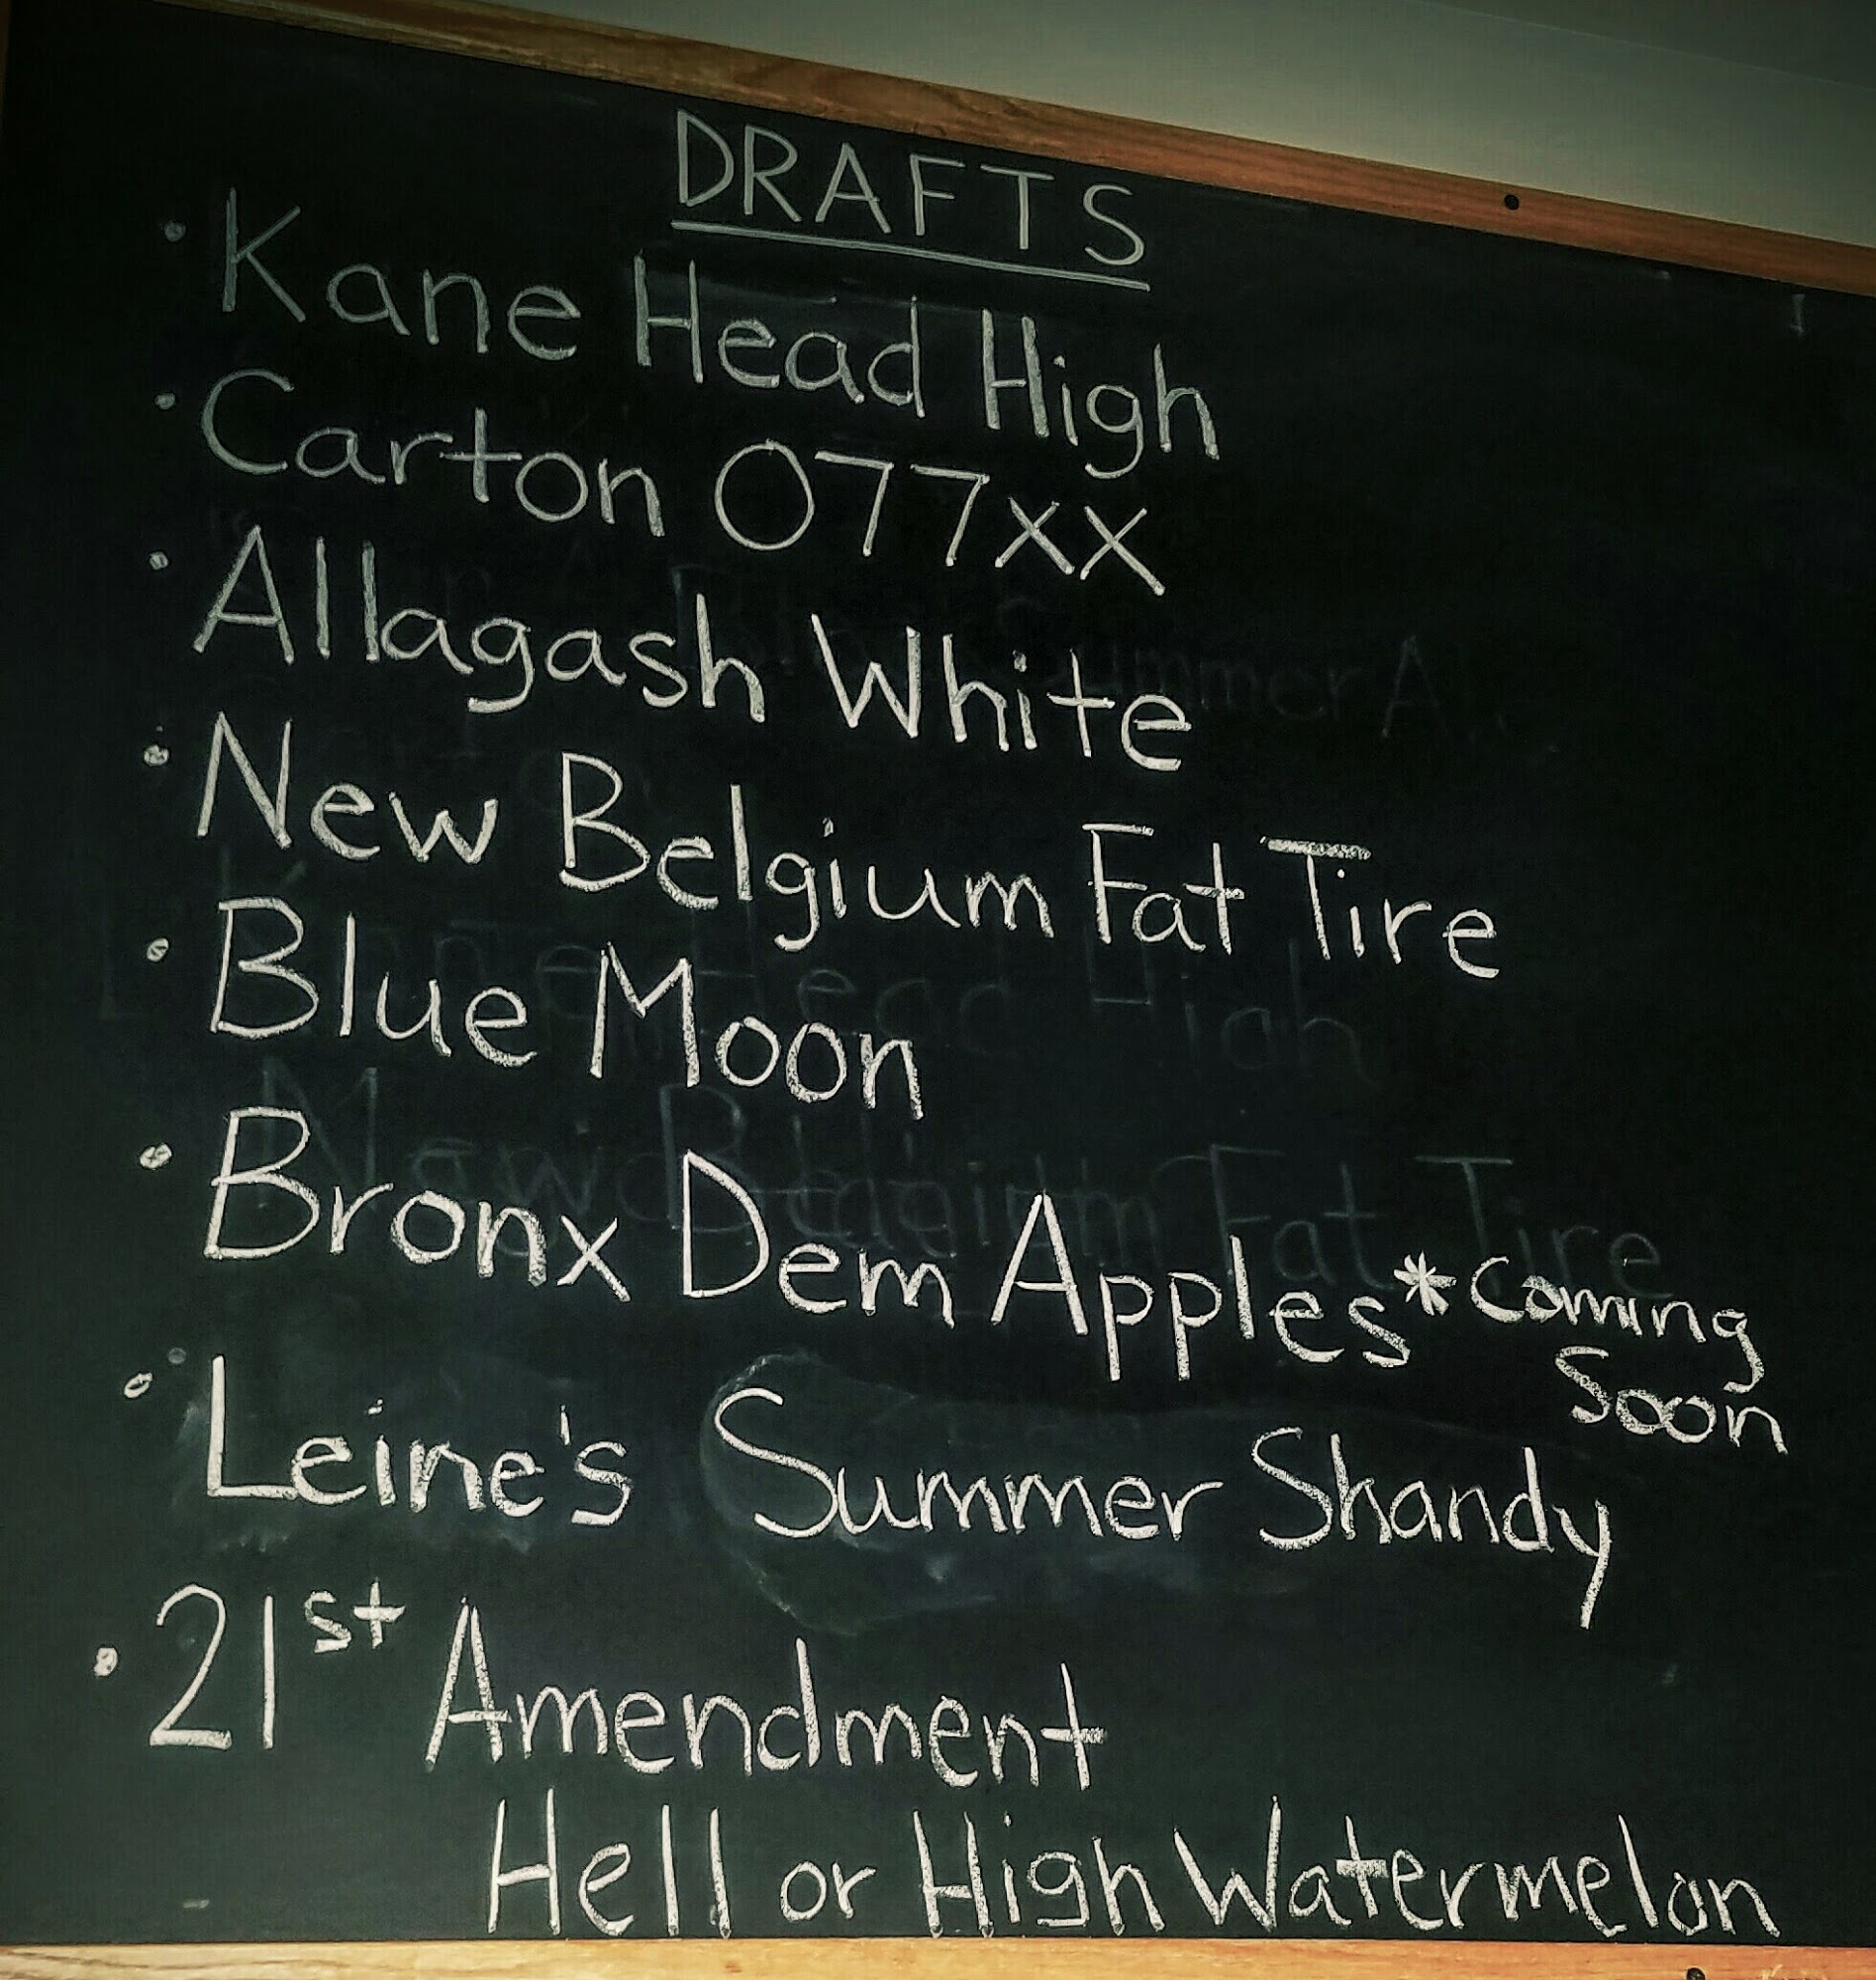 DRAFTS
• Kane Head High
• Carton 077xx
• Allagash White
• New Belgium Fat Tire
• Blue Moon
• Bronx Dem Apples *Coming
Soon
• Leine's Summer Shandy
• 21st Amendment
Hell or High Watermelon